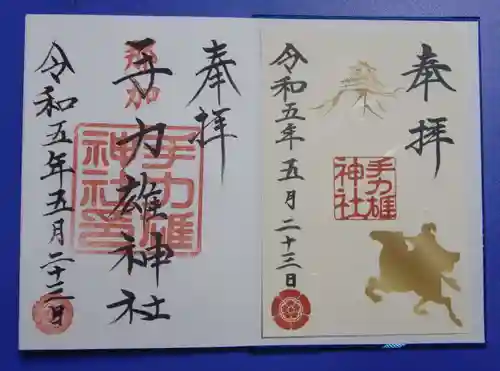 奉拝
手力雄
神社
令和五年五月二十三日
奉拝
那加
手力雄神社
手力雄
神社
令和五年五月二十三日